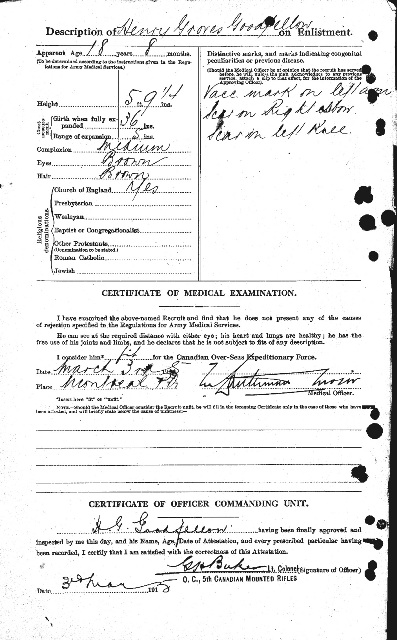 Description of Henry Groves Goodfellow on Enlistment.
Apparent Age 18 years 8 months.
(To be determined according to the instructions given in the Regulations for Army Medical Services.)
Height 5 ft. 9 1/4 ins.
Chest measurement
Girth when fully expanded 36 ins.
Range of expansion 5 ins.
Complexion Medium
Eyes Brown
Hair Brown
Religious denominations.
Church of England Yes
Presbyterian
Wesleyan
Baptist or Congregationalist
Other Protestants
(Denomination to be stated.)
Roman Catholic
Jewish
Distinctive marks, and marks indicating congenital peculiarities or previous disease.
(Should the Medical Officer be of opinion that the recruit has served before, he will, unless the man acknowledges to any previous service, attach a slip to that effect, for the information of the Approving Officer).
Vacc mark on left arm
Scar on Right elbow
Scar on left Knee
CERTIFICATE OF MEDICAL EXAMINATION.
I have examined the above-named Recruit and find that he does not present any of the causes of rejection specified in the Regulations for Army Medical Services.
He can see at the required distance with either eye; his heart and lungs are healthy; he has the free use of his joints and limbs, and he declares that he is not subject to fits of any description.
I consider him* fit for the Canadian Over-Seas Expeditionary Force.
Date March 3rd
Place Montreal
Medical Officer.
*Insert here "fit" or "unfit."
NOTE.—Should the Medical Officer consider the Recruit unfit, he will fill in the foregoing Certificate only in the case of those who have been attested, and will briefly state below the cause of unfitness:—
CERTIFICATE OF OFFICER COMMANDING UNIT.
H G Goodfellow having been finally approved and
inspected by me this day, and his Name, Age, Date of Attestation, and every prescribed particular having
been recorded, I certify that I am satisfied with the correctness of this Attestation.
Baker Lt. Colonel (Signature of Officer)
O. C., 5th CANADIAN MOUNTED RIFLES
Date 3rd Mar 1915